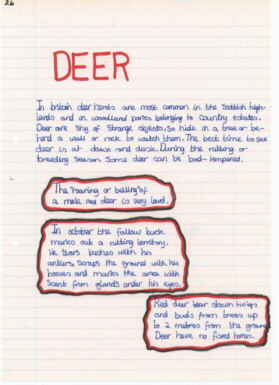 26
DEER
In britain deer herds are most common in the Scottish high-
lands and in woodland parks belonging to country estates.
Deer are shy of strange objects, so hide in a tree or be-
hind a wall or rock to watch them. The best time to see
deer is at dawn and dusk. During the rutting or
breeding season some deer can be bad-tempered.
The "roaring or belling" of
a male red deer is very loud.
In october the fallow buck
marks out a rutting territory.
He tears bushes with his
antlers, scrapes the ground with his
hooves and marks the area with
scent from glands under his eyes.
Red deer tear down twigs
and buds from trees up
to 2 metres from the ground
Deer have no fixed homes.